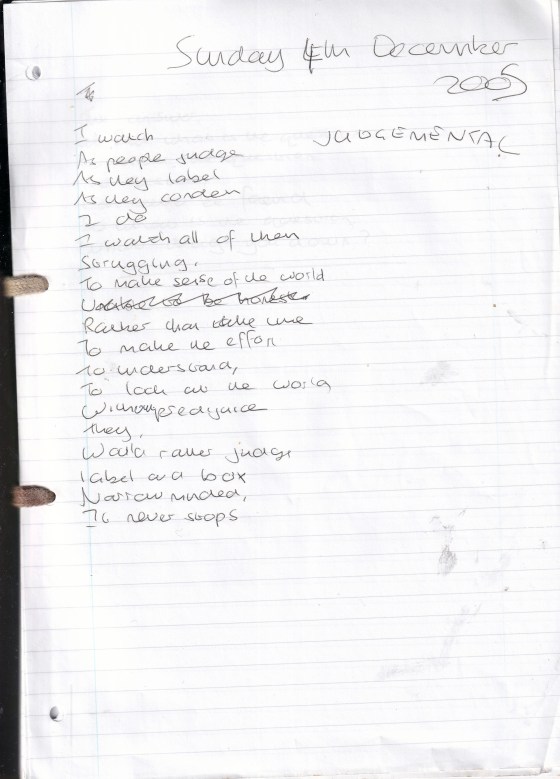 Sunday 4th December
2005
To
JUDGEMENTAL
I watch
As people judge
As they label
As they conden
I do
I watch all of them
Struggling.
To make sense of the world
Rather than take time
To make the effort
To understand,
To look at the world
Without predjuice
They,
Would rather judge
Label and box
Narrow minded,
It never stops